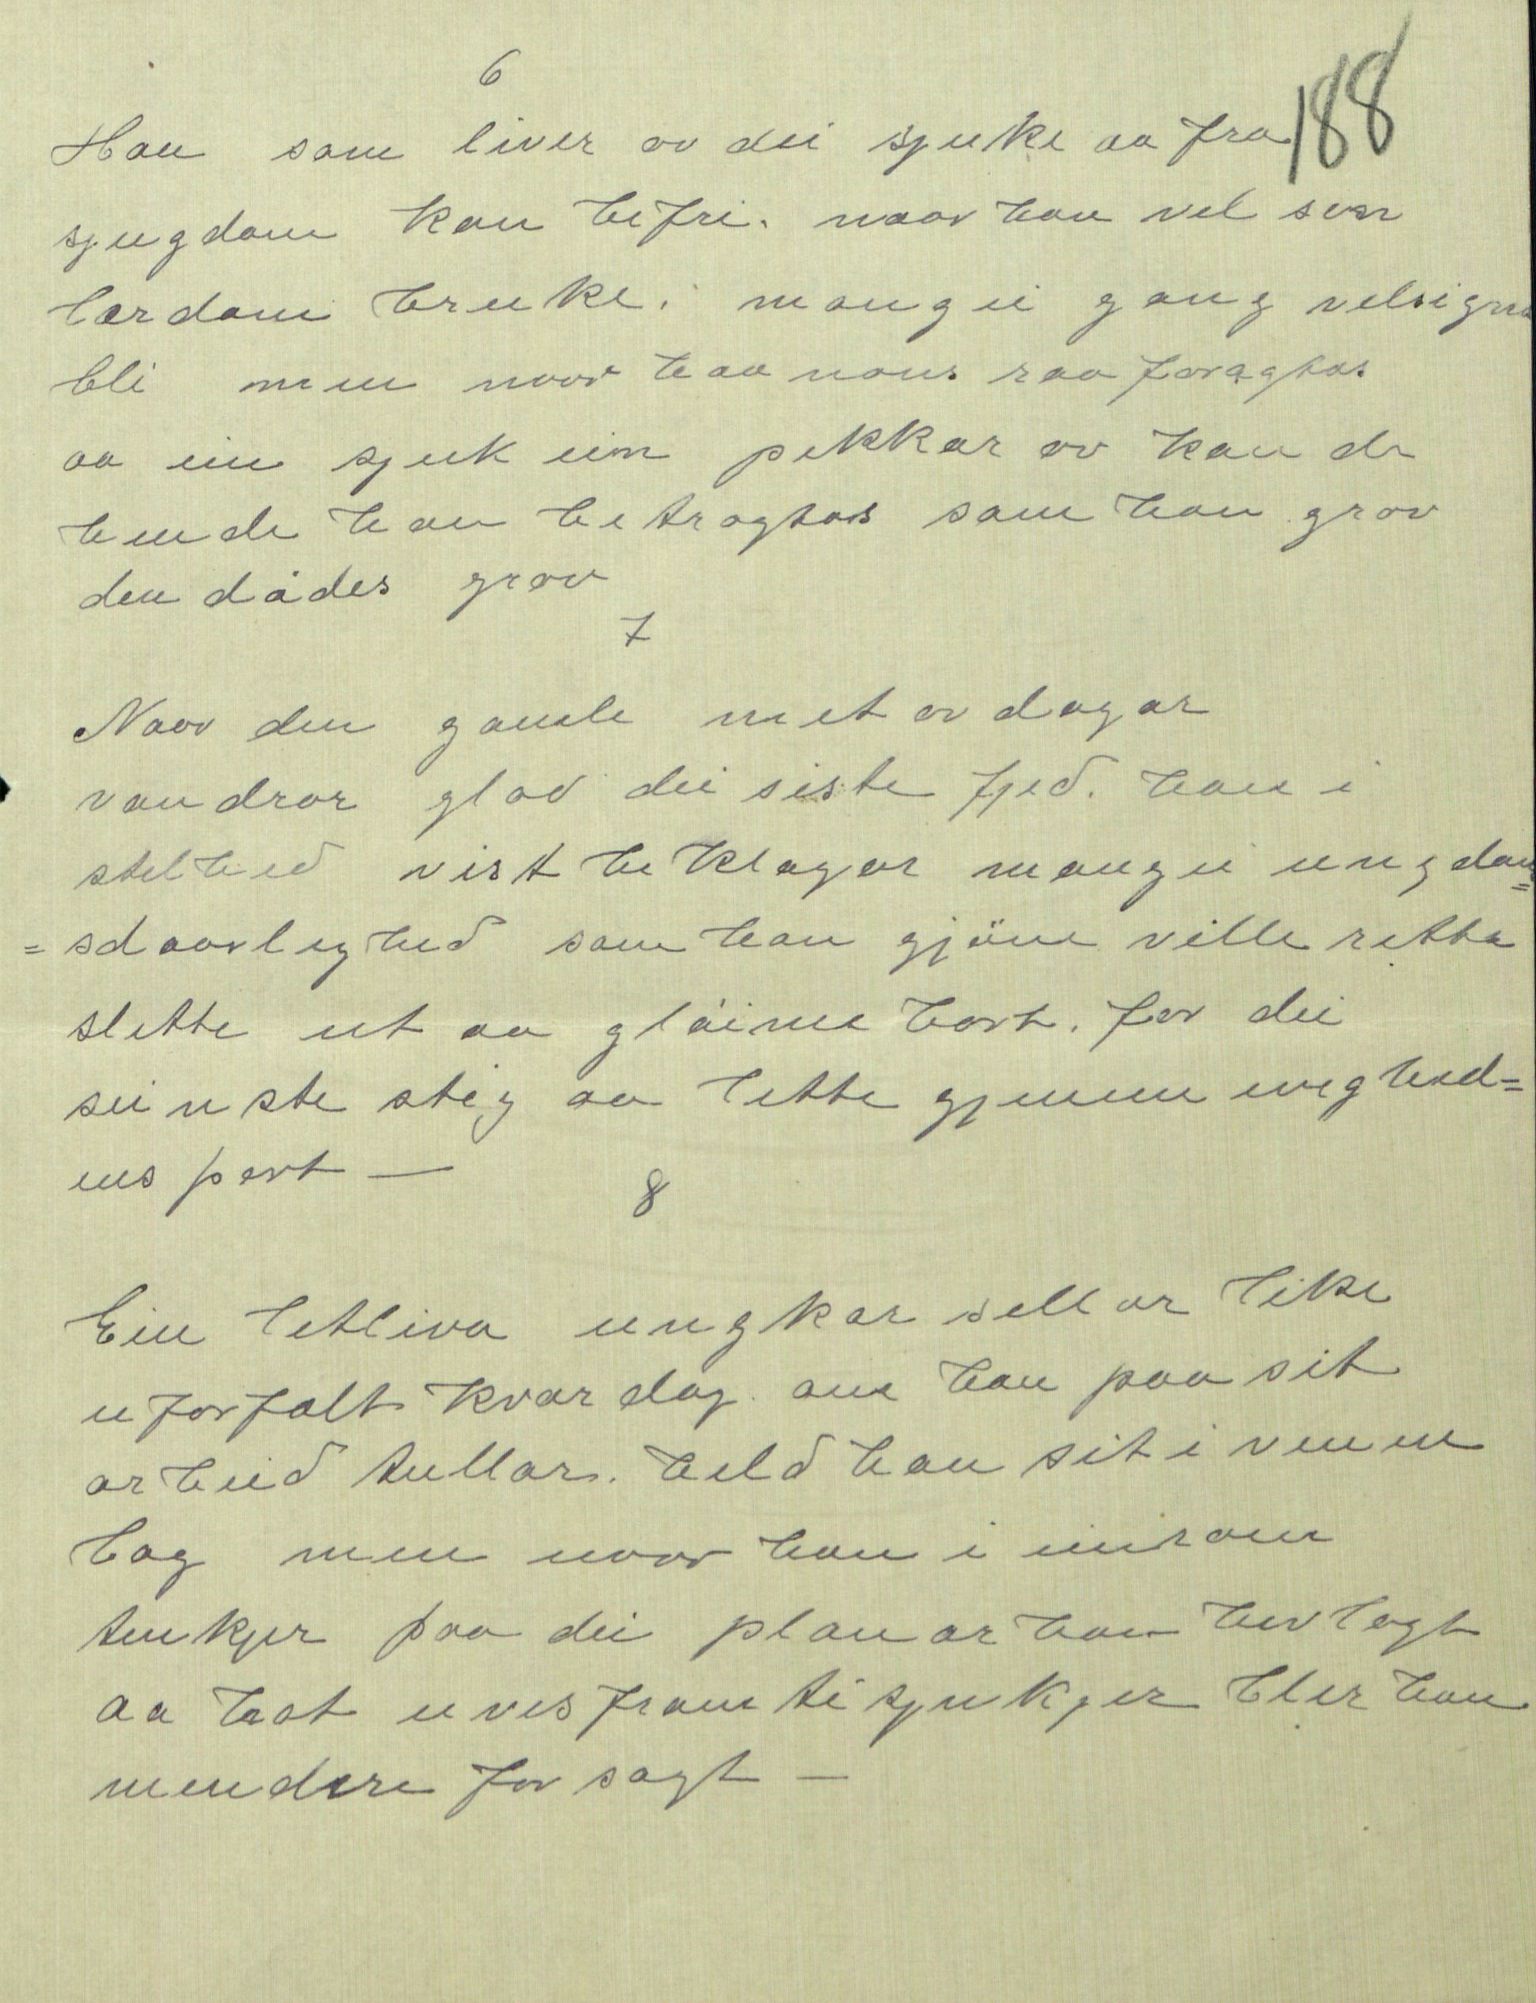 6
188
Han som liver av dei sjuke aa fra
sjugdom kan befri. naar han vel sin
lærdom bruke. mangei gang velsigna
bli men naar haa nons raa foragtas
aa ein sjuk ein pekkar av kan de
hende han betragtas som han grov
den dådes grav
7
Naar den gamle met av dagar
vandrar glad dei siste fjed. han i
stelhed vist beklagar mangei ungdom=
=sdaarleghed som han gjöne ville rette
slette ut aa glöime bort. for dei
seinste steg aa lette gjennem eveghed=
ens port —
8
Ein letliva ungkar sellar like
uforfalt kvar dag. om han paa sit
arbeid tullar. held han sit i venene
lag men naar han i einsom
tenkjer paa dei planar han hev lagt
aa hat uves framti sjukjer bler han
mendere forsagt —